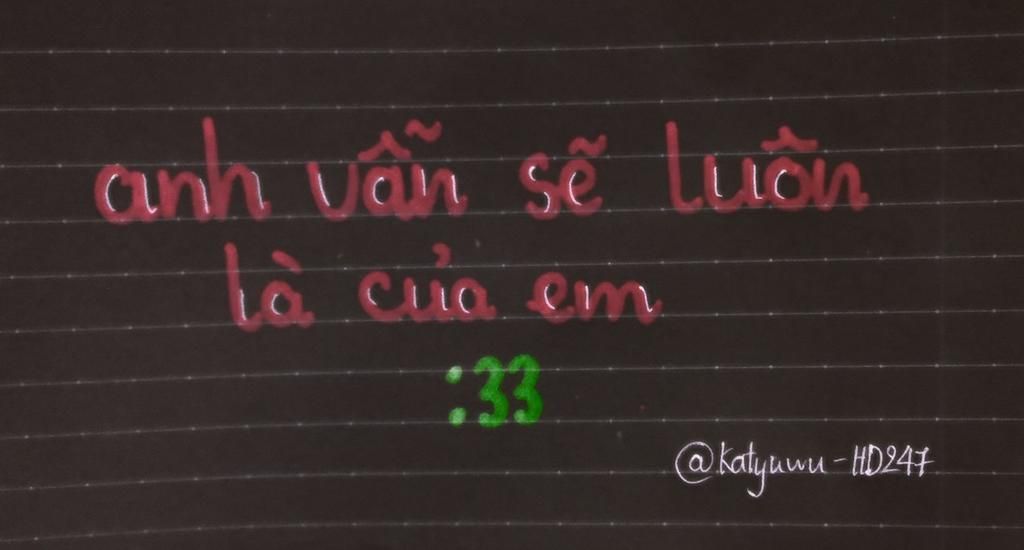 anh vẫn sẽ luôn
là của em
:33
@katyuwu-HD247